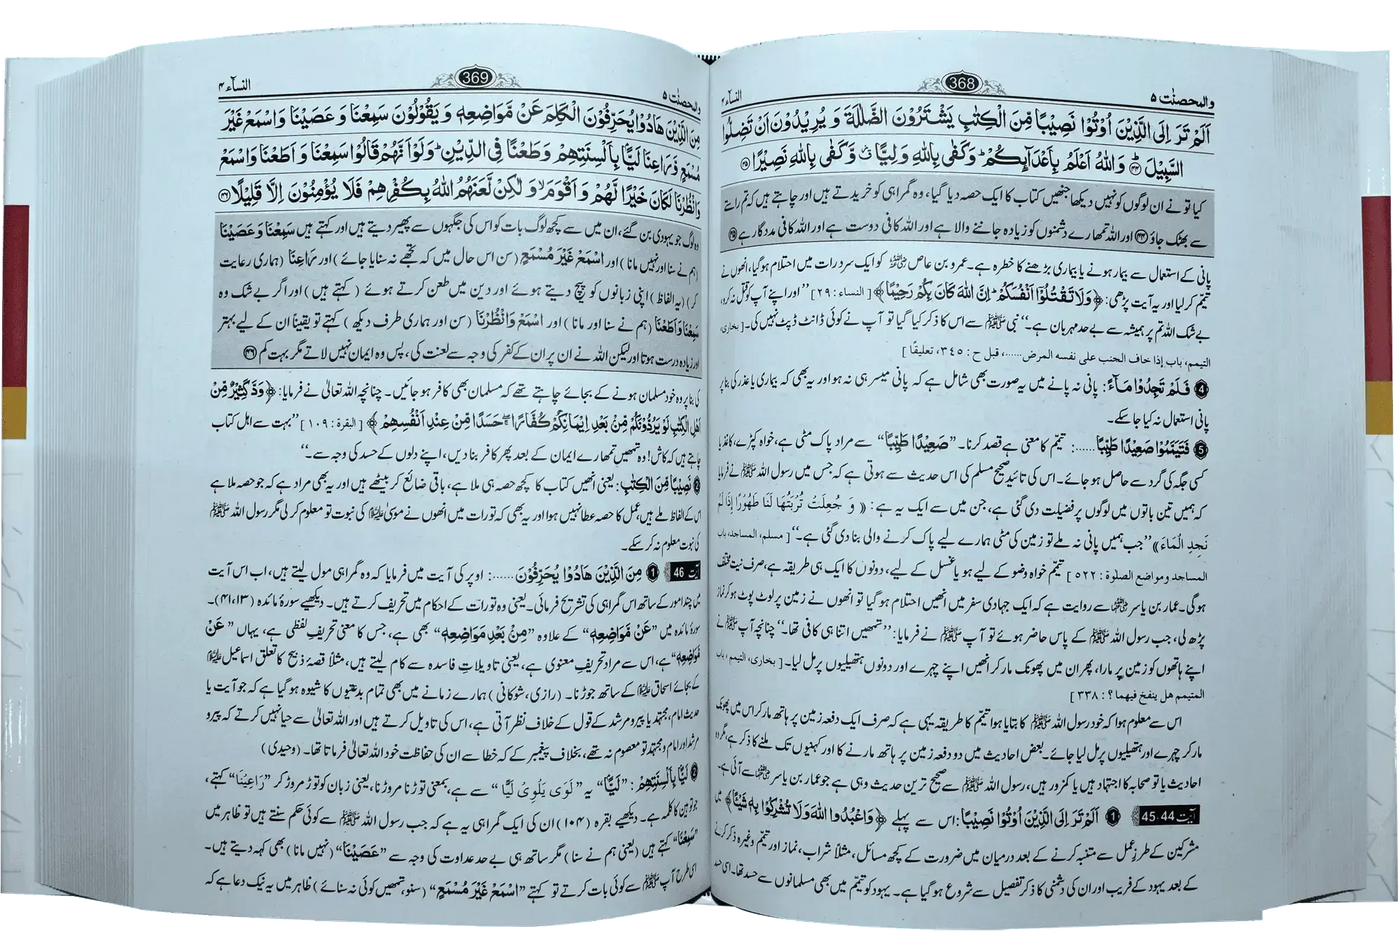 والمحصنٰت ۵ 368 النسآء ۴
اَلَمْ تَرَ اِلَى الَّذِيْنَ اُوْتُوْا نَصِيْبًا مِّنَ الْكِتٰبِ يَشْتَرُوْنَ الضَّلٰلَةَ وَ يُرِيْدُوْنَ اَنْ تَضِلُّوا
السَّبِيْلَ ﴿۴۴﴾ وَاللّٰهُ اَعْلَمُ بِاَعْدَآىِٕكُمْ ؕ وَكَفٰى بِاللّٰهِ وَلِيًّا ٘ۗ وَّكَفٰى بِاللّٰهِ نَصِيْرًا ﴿۴۵﴾
کیا تو نے ان لوگوں کو نہیں دیکھا جنھیں کتاب کا ایک حصہ دیا گیا، وہ گمراہی کو خریدتے ہیں اور چاہتے ہیں کہ تم راستے
سے بھٹک جاؤ ﴿۴۴﴾ اور اللہ تمھارے دشمنوں کو زیادہ جاننے والا ہے اور اللہ کافی دوست ہے اور اللہ کافی مددگار ہے ﴿۴۵﴾
پانی کے استعمال سے بیمار ہونے یا بیماری بڑھنے کا خطرہ ہے۔ عمرو بن عاص رضی اللہ عنہ کو ایک سرد رات میں احتلام ہو گیا، انھوں نے
تیمم کر لیا اور یہ آیت پڑھی: ﴿وَلَا تَقْتُلُوْۤا اَنْفُسَكُمْ ؕ اِنَّ اللّٰهَ كَانَ بِكُمْ رَحِيْمًا﴾ [ النساء : ۲۹ ] ”اور اپنے آپ کو قتل نہ کرو،
بے شک اللہ تم پر ہمیشہ سے بے حد مہربان ہے۔“ نبی ﷺ سے اس کا ذکر کیا گیا تو آپ نے کوئی ڈانٹ ڈپٹ نہیں کی۔ [ بخاری،
التيمم، باب إذا خاف الجنب على نفسه المرض......، قبل ح : ۳۴۵، تعليقًا ]
④ فَلَمْ تَجِدُوْا مَآءً: پانی نہ پانے میں یہ صورت بھی شامل ہے کہ پانی میسر ہی نہ ہو اور یہ بھی کہ بیماری یا عذر کی بنا پر
پانی استعمال نہ کیا جا سکے۔
⑤ فَتَيَمَّمُوْا صَعِيْدًا طَيِّبًا......: تیمم کا معنی ہے قصد کرنا۔ ”صَعِيْدًا طَيِّبًا“ سے مراد پاک مٹی ہے، خواہ کپڑے، کاغذ یا
کسی جگہ کی گرد سے حاصل ہو جائے۔ اس کی تائید صحیح مسلم کی اس حدیث سے ہوتی ہے کہ جس میں رسول اللہ ﷺ نے فرمایا
کہ ہمیں تین باتوں میں لوگوں پر فضیلت دی گئی ہے، جن میں سے ایک یہ ہے: « وَ جُعِلَتْ تُرْبَتُهَا لَنَا طَهُوْرًا إِذَا لَمْ
نَجِدِ الْمَاءَ» ”جب ہمیں پانی نہ ملے تو زمین کی مٹی ہمارے لیے پاک کرنے والی بنا دی گئی ہے۔“ [ مسلم، المساجد، باب
المساجد ومواضع الصلوٰة : ۵۲۲ ] تیمم خواہ وضو کے لیے ہو یا غسل کے لیے، دونوں کا ایک ہی طریقہ ہے، صرف نیت مختلف
ہو گی۔ عمار بن یاسر رضی اللہ عنہ سے روایت ہے کہ ایک جہادی سفر میں انھیں احتلام ہو گیا تو انھوں نے زمین پر لوٹ پوٹ ہو کر نماز
پڑھ لی، جب رسول اللہ ﷺ کے پاس حاضر ہوئے تو آپ ﷺ نے فرمایا: ”تمھیں اتنا ہی کافی تھا۔“ چنانچہ آپ ﷺ نے
اپنے ہاتھوں کو زمین پر مارا، پھر ان میں پھونک مار کر انھیں اپنے چہرے اور دونوں ہتھیلیوں پر مل لیا۔ [ بخاری، التيمم، باب
المتيمم هل ينفخ فيهما ؟ : ۳۳۸ ]
اس سے معلوم ہوا کہ خود رسول اللہ ﷺ کا بتایا ہوا تیمم کا طریقہ یہی ہے کہ صرف ایک دفعہ زمین پر ہاتھ مار کر اس میں پھونک
مار کر چہرے اور ہتھیلیوں پر مل لیا جائے۔ بعض احادیث میں دو دفعہ زمین پر ہاتھ مارنے کا اور کہنیوں تک ملنے کا ذکر ہے، مگر وہ
احادیث یا تو صحابہ کا اجتہاد ہیں یا کمزور ہیں، رسول اللہ ﷺ سے صحیح ترین حدیث وہی ہے جو عمار بن یاسر رضی اللہ عنہ سے آئی ہے۔
آیت 45.44 ① اَلَمْ تَرَ اِلَى الَّذِيْنَ اُوْتُوْا نَصِيْبًا: اس سے پہلے ﴿وَاعْبُدُوا اللّٰهَ وَلَا تُشْرِكُوْا بِهٖ شَيْـًٔا﴾ میں
مشرکین کے طرز عمل سے متنبہ کرنے کے بعد درمیان میں ضرورت کے کچھ مسائل، مثلاً شراب، نماز اور تیمم وغیرہ ذکر کرنے
کے بعد یہود کے فریب اور ان کی دشمنی کا ذکر تفصیل سے شروع ہو گیا ہے۔ یہود کو تیمم میں بھی مسلمانوں سے حسد تھا۔ اسی حسد
والمحصنٰت ۵ 369 النسآء ۴
مِنَ الَّذِيْنَ هَادُوْا يُحَرِّفُوْنَ الْكَلِمَ عَنْ مَّوَاضِعِهٖ وَ يَقُوْلُوْنَ سَمِعْنَا وَ عَصَيْنَا وَ اسْمَعْ غَيْرَ
مُسْمَعٍ وَّ رَاعِنَا لَيًّۢا بِاَلْسِنَتِهِمْ وَ طَعْنًا فِى الدِّيْنِ ؕ وَلَوْ اَنَّهُمْ قَالُوْا سَمِعْنَا وَ اَطَعْنَا وَ اسْمَعْ
وَ انْظُرْنَا لَكَانَ خَيْرًا لَّهُمْ وَ اَقْوَمَ ۙ وَ لٰكِنْ لَّعَنَهُمُ اللّٰهُ بِكُفْرِهِمْ فَلَا يُؤْمِنُوْنَ اِلَّا قَلِيْلًا ﴿۴۶﴾
وہ لوگ جو یہودی بن گئے، ان میں سے کچھ لوگ بات کو اس کی جگہوں سے پھیر دیتے ہیں اور کہتے ہیں سَمِعْنَا وَ عَصَيْنَا
(ہم نے سنا اور نہیں مانا ) اور اسْمَعْ غَيْرَ مُسْمَعٍ (سن اس حال میں کہ تجھے نہ سنایا جائے ) اور رَاعِنَا (ہماری رعایت
کر) (یہ الفاظ ) اپنی زبانوں کو پیچ دیتے ہوئے اور دین میں طعن کرتے ہوئے ( کہتے ہیں ) اور اگر بے شک وہ
سَمِعْنَا وَ اَطَعْنَا (ہم نے سنا اور مانا ) اور اسْمَعْ وَ انْظُرْنَا (سن اور ہماری طرف دیکھ ) کہتے تو یقیناً ان کے لیے بہتر
اور زیادہ درست ہوتا اور لیکن اللہ نے ان پر ان کے کفر کی وجہ سے لعنت کی، پس وہ ایمان نہیں لاتے مگر بہت کم ﴿۴۶﴾
کی بنا پر وہ خود مسلمان ہونے کے بجائے چاہتے تھے کہ مسلمان بھی کافر ہو جائیں۔ چنانچہ اللہ تعالیٰ نے فرمایا: ﴿وَدَّ كَثِيْرٌ مِّنْ
اَهْلِ الْكِتٰبِ لَوْ يَرُدُّوْنَكُمْ مِّنْۢ بَعْدِ اِيْمَانِكُمْ كُفَّارًا ۖۚ حَسَدًا مِّنْ عِنْدِ اَنْفُسِهِمْ﴾ [ البقرة : ۱۰۹ ] ”بہت سے اہل کتاب
چاہتے ہیں کہ کاش! وہ تمھیں تمھارے ایمان کے بعد پھر کافر بنا دیں، اپنے دلوں کے حسد کی وجہ سے۔“
② نَصِيْبًا مِّنَ الْكِتٰبِ: یعنی انھیں کتاب کا کچھ حصہ ہی ملا ہے، باقی ضائع کر بیٹھے ہیں اور یہ بھی مراد ہے کہ جو حصہ ملا ہے
اس کے الفاظ ملے ہیں، عمل کا حصہ عطا نہیں ہوا اور یہ بھی کہ تورات میں انھوں نے موسیٰ علیہ السلام کی نبوت تو معلوم کر لی مگر رسول اللہ ﷺ
کی نبوت معلوم نہ کر سکے۔
آیت 46 ① مِنَ الَّذِيْنَ هَادُوْا يُحَرِّفُوْنَ......: اوپر کی آیت میں فرمایا کہ وہ گمراہی مول لیتے ہیں، اب اس آیت
میں چند امور کے ساتھ اس گمراہی کی تشریح فرمائی۔ یعنی وہ تورات کے احکام میں تحریف کرتے ہیں۔ دیکھیے سورۂ مائدہ (۱۳، ۴۱)۔
سورۂ مائدہ میں ”عَنْ مَّوَاضِعِهٖ“ کے علاوہ ”مِنْۢ بَعْدِ مَوَاضِعِهٖ“ بھی ہے، جس کا معنی تحریفِ لفظی ہے، یہاں ”عَنْ
مَّوَاضِعِهٖ“ ہے، اس سے مراد تحریفِ معنوی ہے، یعنی تاویلاتِ فاسدہ سے کام لیتے ہیں، مثلاً قصۂ ذبیح کا تعلق اسماعیل علیہ السلام
کے بجائے اسحاق علیہ السلام کے ساتھ جوڑنا۔ (رازی، شوکانی ) ہمارے زمانے میں بھی تمام بدعتیوں کا شیوہ ہو گیا ہے کہ جو آیت یا
حدیث امام، مجتہد یا پیر و مرشد کے قول کے خلاف نظر آتی ہے، اس کی تاویل کرتے ہیں اور اللہ تعالیٰ سے حیا نہیں کرتے کہ پیر و
مرشد اور امام و مجتہد تو معصوم نہ تھے، بخلاف پیغمبر کے کہ خطا سے ان کی حفاظت خود اللہ تعالیٰ فرماتا تھا۔ (وحیدی )
② لَيًّۢا بِاَلْسِنَتِهِمْ: ”لَيًّا“ یہ ”لَوَى يَلْوِيْ لَيًّا“ سے ہے، بمعنی توڑنا مروڑنا، یعنی زبان کو توڑ مروڑ کر ”رَاعِيْنَا“ کہتے،
جو توہین کا کلمہ ہے۔ دیکھیے بقرہ (۱۰۴) ان کی ایک گمراہی یہ ہے کہ جب رسول اللہ ﷺ سے کوئی حکم سنتے ہیں تو ظاہر میں
”سَمِعْنَا“ کہتے ہیں (یعنی ہم نے سنا) مگر ساتھ ہی بے حد عداوت کی وجہ سے ”عَصَيْنَا“ (نہیں مانا) بھی کہہ دیتے ہیں۔
اسی طرح آپ ﷺ سے کوئی بات کرتے تو کہتے ”اسْمَعْ غَيْرَ مُسْمَعٍ“ (سنو، تمھیں کوئی نہ سنائے) ظاہر میں یہ نیک دعا ہے کہ